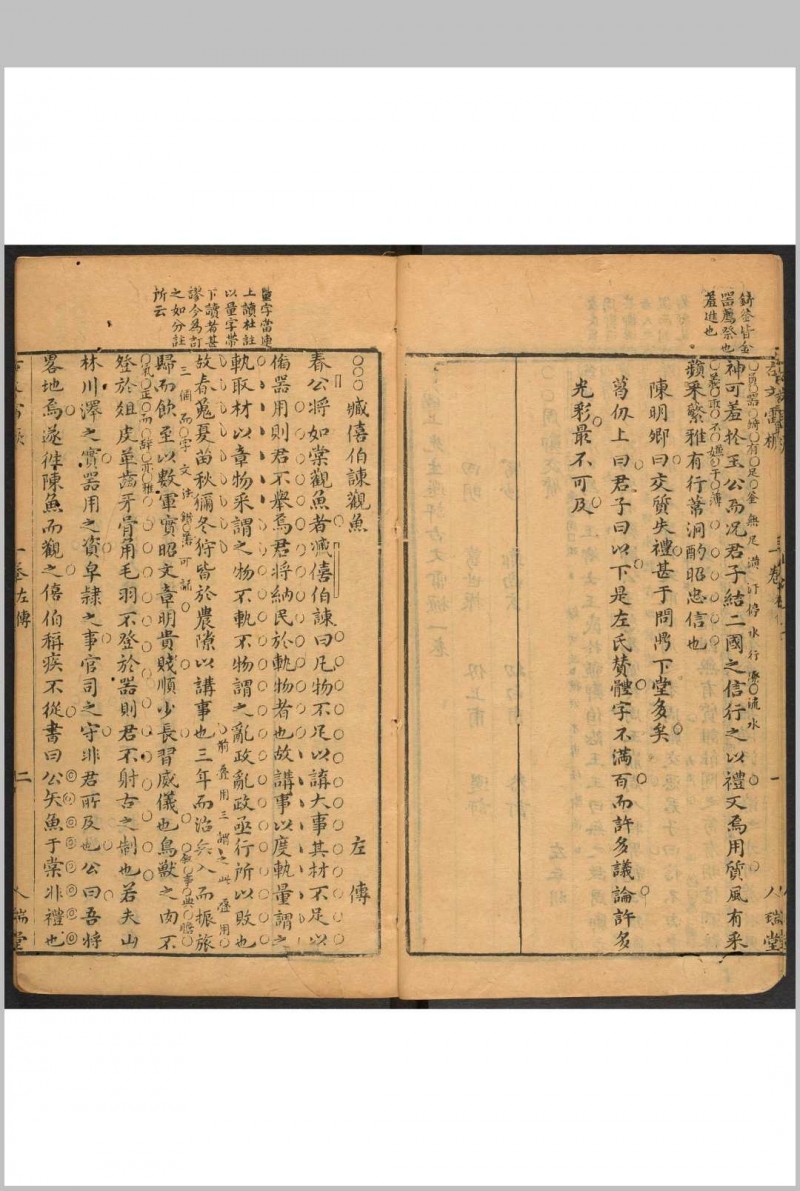 錡釜皆金
器薦祭也
羞進也
筐筥器錡有足釜無足潢汙停水行潦流水
神可羞於王公而况君子結二國之信行之以禮又焉用質風有采
蘋采蘩雅有行葦泂酌昭忠信也
陳明卿曰交質失禮甚于問鼎下堂多矣
葛仭上曰君子曰以下是左氏賛體字不滿百而許多議論許多
光彩最不可及
一
八瑞堂
量字當連
上讀杜註
以量字帶
下讀者甚
謬今爲訂
之如分註
所云
臧僖伯諫觀魚
左傳
春公將如棠觀魚者臧僖伯諫曰凡物不足以講大事其材不足以
偹器用則君不舉焉君將納民於軌物者也故講事以度軌量謂之
軌取材以章物采謂之物不軌不物謂之亂政亂政亟行所以敗也
前疊用三謂之此疊用
故春蒐夏苗秋獮冬狩皆於農隙以講事也三年而治兵入而振旅
三個而字文法錯落可誦
敘事典贍
歸而飲至以數軍實昭文章明貴賤順少長習威儀也鳥獸之肉不
氣正而辭亦雅
登於俎皮革齒牙骨角毛羽不登於器則君不射古之制也若夫山
林川澤之實器用之資皁隷之事官司之守非君所及也公曰吾將
畧地焉遂徃陳魚而觀之僖伯稱疾不從書曰公矢魚于棠非禮也
一卷左傳
二
八瑞堂